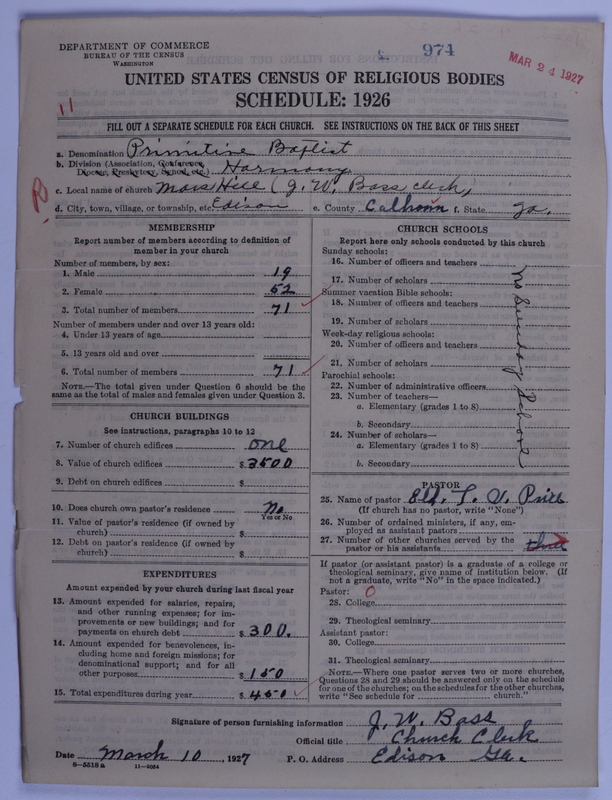 974
MAR 24 1927
DEPARTMENT OF COMMERCE
BUREAU OF THE CENSUS
WASHINGTON
UNITED STATES CENSUS OF RELIGIOUS BODIES
SCHEDULE: 1926
FILL OUT A SEPARATE SCHEDULE FOR EACH CHURCH. SEE INSTRUCTIONS ON THE BACK OF THIS SHEET
11
a. Denomination Primitive Baptist
b. Division (Association, Conference, Diocese, Presbytery, Synod, etc.) Harmony
c. Local name of church Mars Hill (J. W. Bass, clerk,
d. City, town, village, or township, etc. Edison e. County Calhoun f. State Ga.
MEMBERSHIP
Report number of members according to definition of
member in your church
Number of members, by sex:
1. Male 19
2. Female 52
3. Total number of members 71
Number of members under and over 13 years old:
4. Under 13 years of age
5. 13 years old and over
6. Total number of members 71
NOTE.—The total given under Question 6 should be the
same as the total of males and females given under Question 3.
CHURCH BUILDINGS
See instructions, paragraphs 10 to 12
7. Number of church edifices one
8. Value of church edifices $ 3500
9. Debt on church edifices $
10. Does church own pastor's residence No
Yes or No
11. Value of pastor's residence (if owned by
church) $
12. Debt on pastor's residence (if owned by
church) $
EXPENDITURES
Amount expended by your church during last fiscal year
13. Amount expended for salaries, repairs,
and other running expenses; for im-
provements or new buildings; and for
payments on church debt $ 300.
14. Amount expended for benevolences, in-
cluding home and foreign missions; for
denominational support; and for all
other purposes $ 150
15. Total expenditures during year $ 450
CHURCH SCHOOLS
Report here only schools conducted by this church
Sunday schools:
16. Number of officers and teachers
17. Number of scholars
Summer vacation Bible schools:
18. Number of officers and teachers
19. Number of scholars
Week-day religious schools:
20. Number of officers and teachers
21. Number of scholars
Parochial schools:
22. Number of administrative officers
23. Number of teachers—
a. Elementary (grades 1 to 8)
b. Secondary
24. Number of scholars—
a. Elementary (grades 1 to 8)
b. Secondary
No Sunday School
PASTOR
25. Name of pastor Eld. T. V. Price
(If church has no pastor, write "None")
26. Number of ordained ministers, if any, em-
ployed as assistant pastors
27. Number of other churches served by the
pastor or his assistants three
If pastor (or assistant pastor) is a graduate of a college or
theological seminary, give name of institution below. (If
not a graduate, write "No" in the space indicated.)
Pastor: 0
28. College
29. Theological seminary
Assistant pastor:
30. College
31. Theological seminary
NOTE.—Where one pastor serves two or more churches,
Questions 28 and 29 should be answered only on the schedule
for one of the churches; on the schedules for the other churches,
write "See schedule for church."
Signature of person furnishing information J. W. Bass
Official title Church Clerk
Date March 10, 1927 P. O. Address Edison Ga.
8—5518a 11—9034